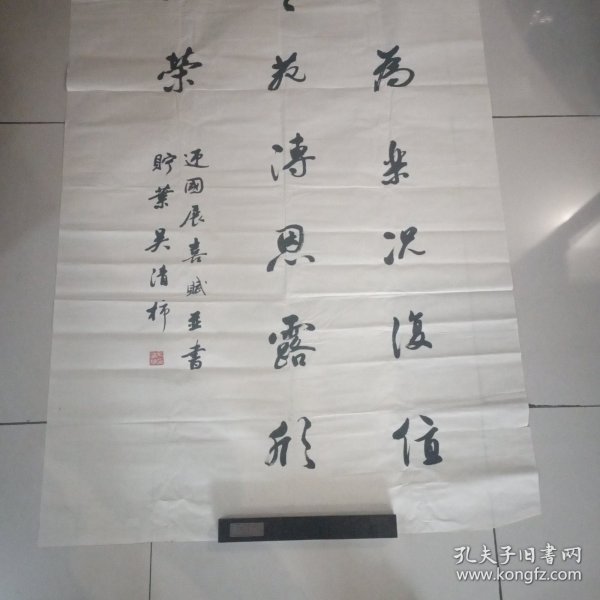 為樂況復值
苑溥恩露形
榮
迎國展喜賦並書
貯業吴清柿
孔夫子旧书网
www.kongfz.com